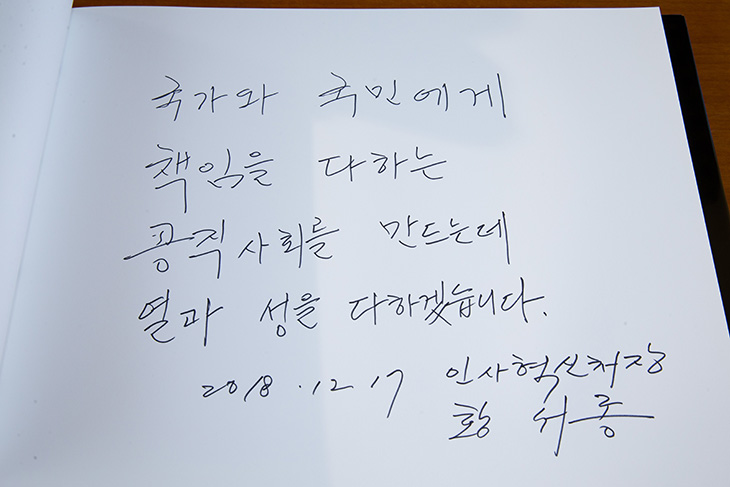 국가와 국민에게
책임을 다하는
공직사회를 만드는데
열과 성을 다하겠습니다.
2018.12.17 인사혁신처장
황서종